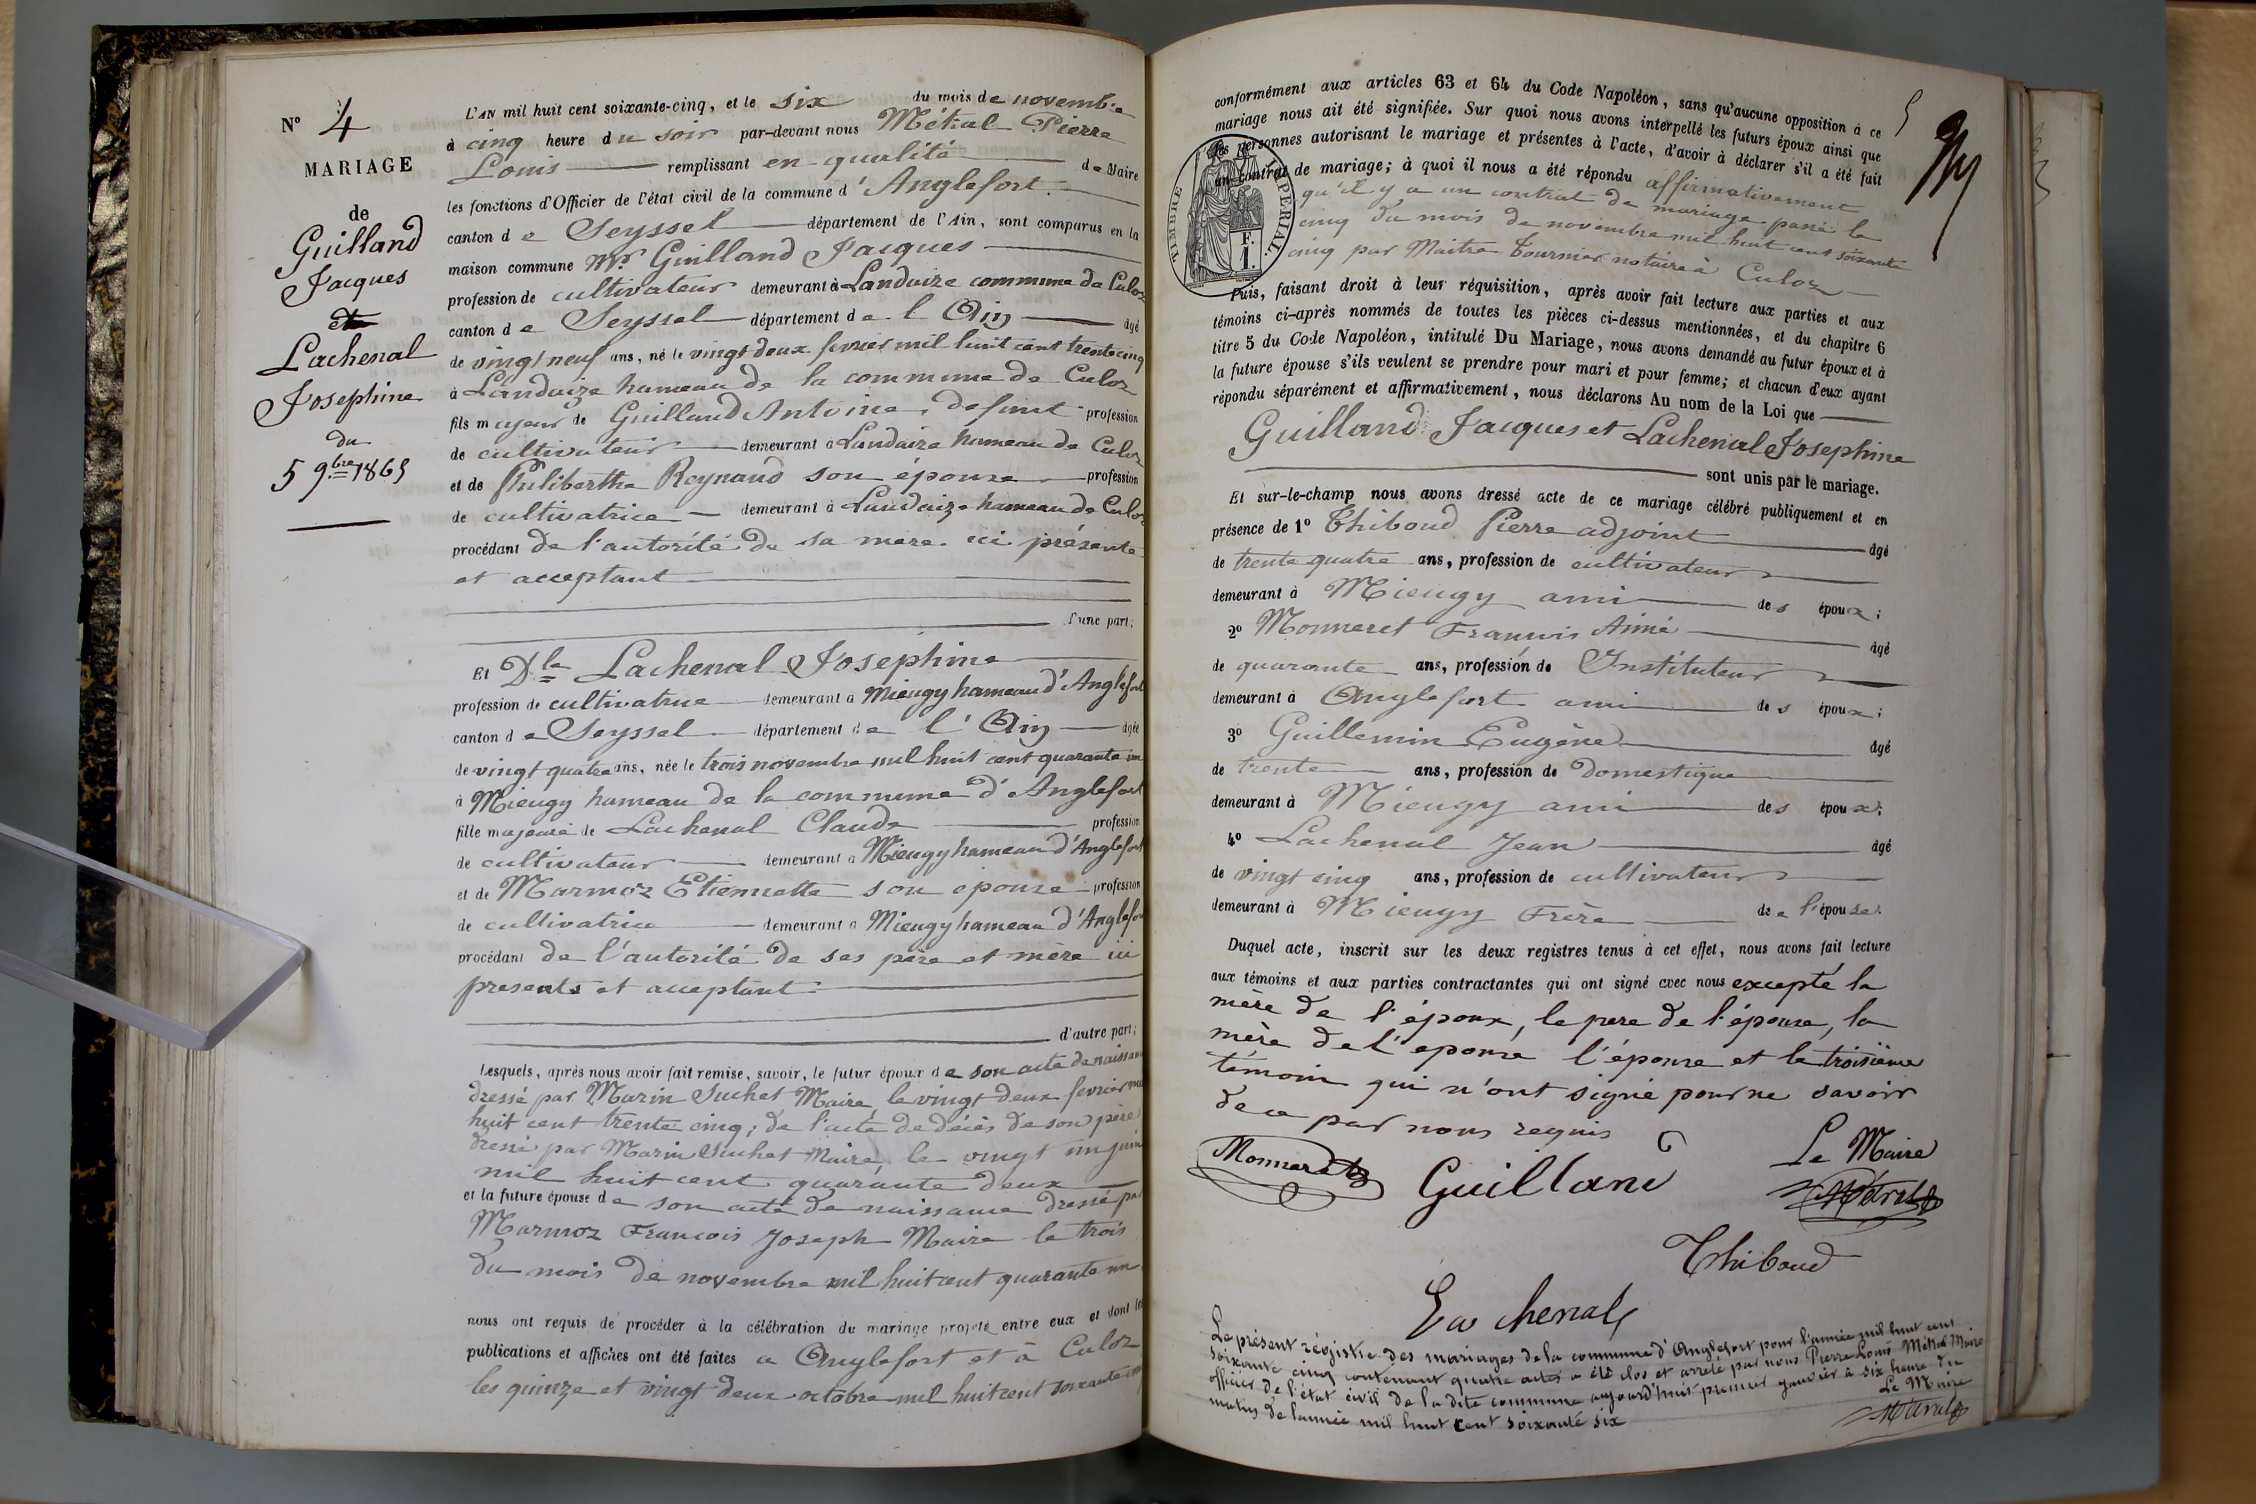 N° 4
MARIAGE
de
Guilland
Jacques
et
Lachenal
Josephine
du
5 9.bre 1865
L'AN mil huit cent soixante-cinq, et le six du mois de novembre
à cinq heure du soir par-devant nous Métral Pierre
Louis remplissant en qualité de Maire
les fonctions d'Officier de l'état civil de la commune d'Anglefort.
canton de Seyssel département de l'Ain, sont comparus en la
maison commune Mr. Guilland Jacques
profession de cultivateur demeurant à Landaize commune de Culoz
canton de Seyssel département de l'Ain âgé
de vingt neuf ans, né le vingt deux fevrier mil huit cent trente cinq
à Landaize hameau de la commune de Culoz
fils majeur de Guilland Antoine, defunt profession
de cultivateur demeurant à Landaize hameau de Culoz
et de Philiberthe Reynaud son épouse profession
de cultivatrice demeurant à Landaize hameau de Culoz
procédant de l'autorité de sa mère ici présente
et acceptant
d'une part;
Et Dlle Lachenal Josephine
profession de cultivatrice demeurant à Miengy hameau d'Anglefort
canton de Seyssel département de l'Ain âgée
de vingt quatre ans, née le trois novembre mil huit cent quarante un
à Miengy hameau de la commune d'Anglefort
fille majeure de Lachenal Claude profession
de cultivateur demeurant à Miengy hameau d'Anglefort
et de Marmoz Etiennette son épouse profession
de cultivatrice demeurant à Miengy hameau d'Anglefort
procédant de l'autorité de ses père et mère ici
presents et acceptant
d'autre part;
Lesquels, après nous avoir fait remise, savoir, le futur époux de son acte de naissance
dressé par Marin Suchet Maire, le vingt deux fevrier mil
huit cent trente cinq; de l'acte de décès de son père
dressé par Marin Suchet Maire, le vingt un juin
mil huit cent quarante deux
et la future épouse de son acte de naissance dressé par
Marmoz François Joseph Maire le trois
du mois de novembre mil huit cent quarante un
nous ont requis de procéder à la célébration du mariage projeté entre eux et dont les
publications et affiches ont été faites a Anglefort et à Culoz
les quinze et vingt deux octobre mil huit cent soixante cinq
5
conformément aux articles 63 et 64 du Code Napoléon, sans qu'aucune opposition à ce
mariage nous ait été signifiée. Sur quoi nous avons interpellé les futurs époux ainsi que
les personnes autorisant le mariage et présentes à l'acte, d'avoir à déclarer s'il a été fait
un contrat de mariage; à quoi il nous a été répondu affirmativement
qu'il y a un contrat de mariage passé le
cinq du mois de novembre mil huit cent soixante
cinq par Maitre Tournier notaire à Culoz
TIMBRE IMPÉRIAL.
F.
1.
Puis, faisant droit à leur réquisition, après avoir fait lecture aux parties et aux
témoins ci-après nommés de toutes les pièces ci-dessus mentionnées, et du chapitre 6
titre 5 du Code Napoléon, intitulé Du Mariage, nous avons demandé au futur époux et à
la future épouse s'ils veulent se prendre pour mari et pour femme; et chacun d'eux ayant
répondu séparément et affirmativement, nous déclarons Au nom de la Loi que
Guilland Jacques et Lachenal Josephine
sont unis par le mariage.
Et sur-le-champ nous avons dressé acte de ce mariage célébré publiquement et en
présence de 1° Thiboud Pierre adjoint âgé
de trente quatre ans, profession de cultivateur
demeurant à Miengy ami des époux;
2° Monneret François Aimé âgé
de quarante ans, profession de Instituteur
demeurant à Anglefort ami des époux;
3° Guillemin Eugène âgé
de trente ans, profession de domestique
demeurant à Miengy ami des époux;
4° Lachenal Jean âgé
de vingt cinq ans, profession de cultivateur
demeurant à Miengy Frère de l'épouse.
Duquel acte, inscrit sur les deux registres tenus à cet effet, nous avons fait lecture
aux témoins et aux parties contractantes qui ont signé avec nous excepté la
mère de l'époux, le pere de l'épouse, la
mère de l'epouse l'épouse et le troisième
témoin qui n'ont signé pour ne savoir
de ce par nous requis
Monneret Guilland Le Maire
Métral
Thiboud
Lachenal
Le présent régistre des mariages de la commune d'Anglefort pour l'année mil huit cent
soixante cinq contenant quatre actes a été clos et arrêté par nous Pierre Louis Métral Maire
officier de l'état civil de la dite commune aujourd'hui premier janvier à six heure du
matin de l'année mil huit cent soixante six
Le Maire
Métral